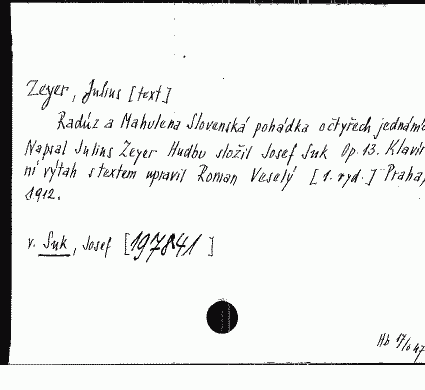 Zeyer, Julius [text]
Radúz a Mahulena Slovenská pohádka o čtyřech jednáníc
Napsal Julius Zeyer Hudbu složil Josef Suk Op. 13. Klavír
ní výtah s textem upravil Roman Veselý [1. vyd.] Praha,
1912.
v. Suk, Josef [197841]
Hb